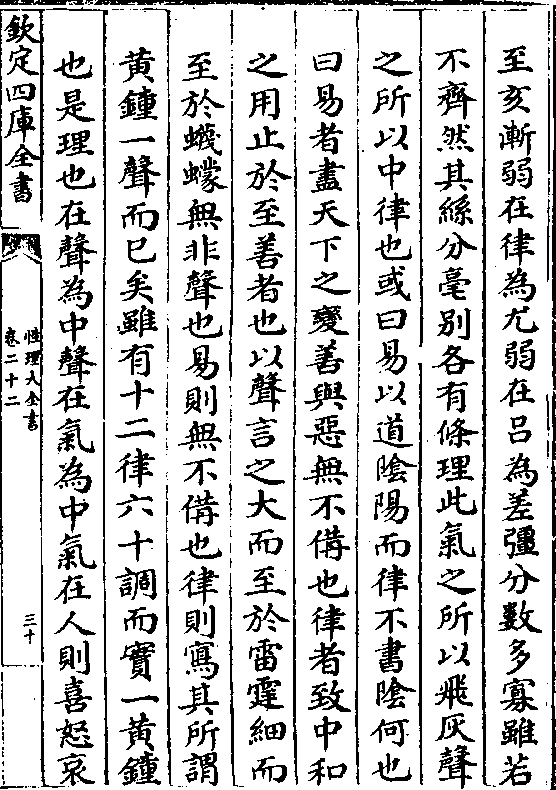 至亥漸弱在律為尤弱在呂為差彊分數多寡雖若
不齊然其絲分毫別各有條理此氣之所以飛灰聲
之所以中律也或曰易以道陰陽而律不書陰何也
曰易者盡天下之變善與惡無不備也律者致中和
之用止於至善者也以聲言之大而至於雷霆細而
至於蠛蠓無非聲也易則無不備也律則寫其所謂
黃鍾一聲而已矣雖有十二律六十調而實一黃鍾
也是理也在聲為中聲在氣為中氣在人則喜怒哀
欽定四庫全書
性理大全書
卷二十二
三十